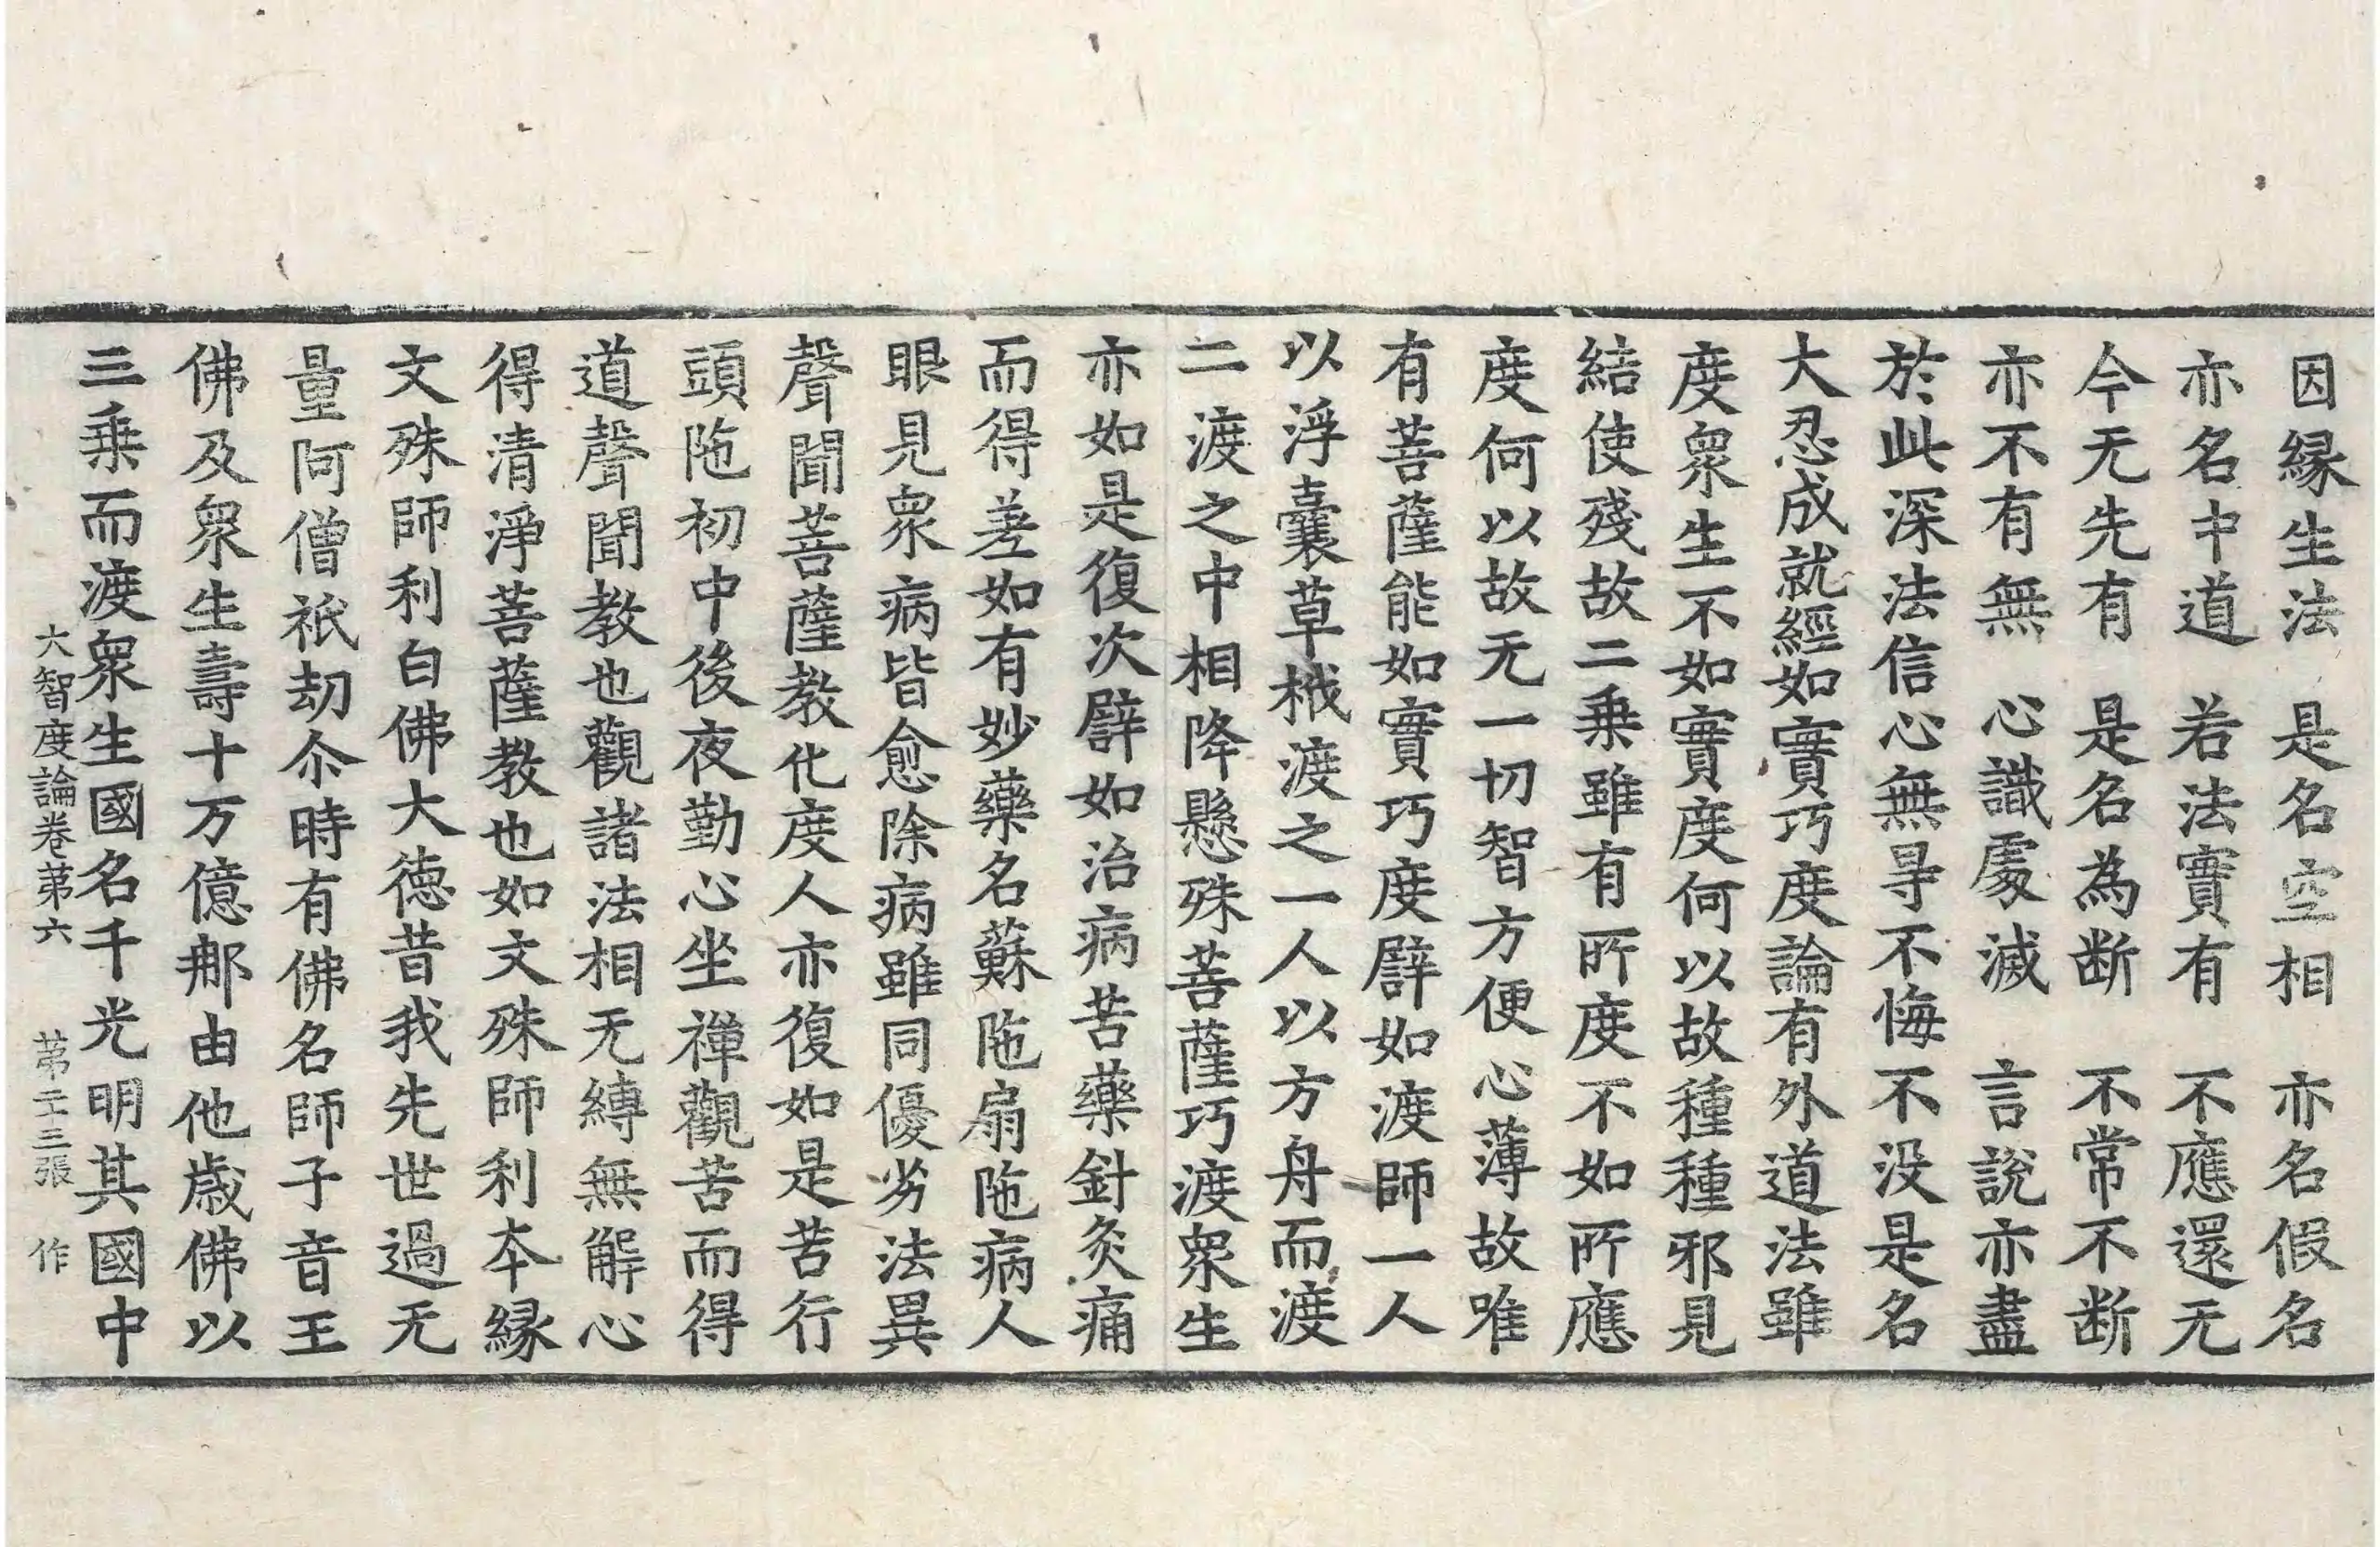 因縁生法　是名空相　亦名假名
亦名中道　若法實有　不應還无
今无先有　是名為断　不常不断
亦不有無　心識處滅　言說亦盡
於此深法信心無㝵不悔不没是名
大忍成就經如實巧度論有外道法雖
度衆生不如實度何以故種種邪見
結使殘故二乗雖有所度不如所應
度何以故无一切智方便心薄故唯
有菩薩能如實巧度譬如渡師一人
以浮囊草栰渡之一人以方舟而渡
二渡之中相降懸殊菩薩巧渡衆生
亦如是復次譬如治病苦藥針灸痛
而得差如有妙藥名蘇陁扇陁病人
眼見衆病皆愈除病雖同優劣法異
聲聞菩薩教化度人亦復如是苦行
頭陁初中後夜勤心坐禪觀苦而得
道聲聞教也觀諸法相无縛無解心
得清淨菩薩教也如文殊師利本縁
文殊師利白佛大徳昔我先世過无
量阿僧祇劫尒時有佛名師子音王
佛及衆生壽十万億那由他歲佛以
三乗而渡衆生國名千光明其國中
大智度論卷苐六　苐二十三張　作